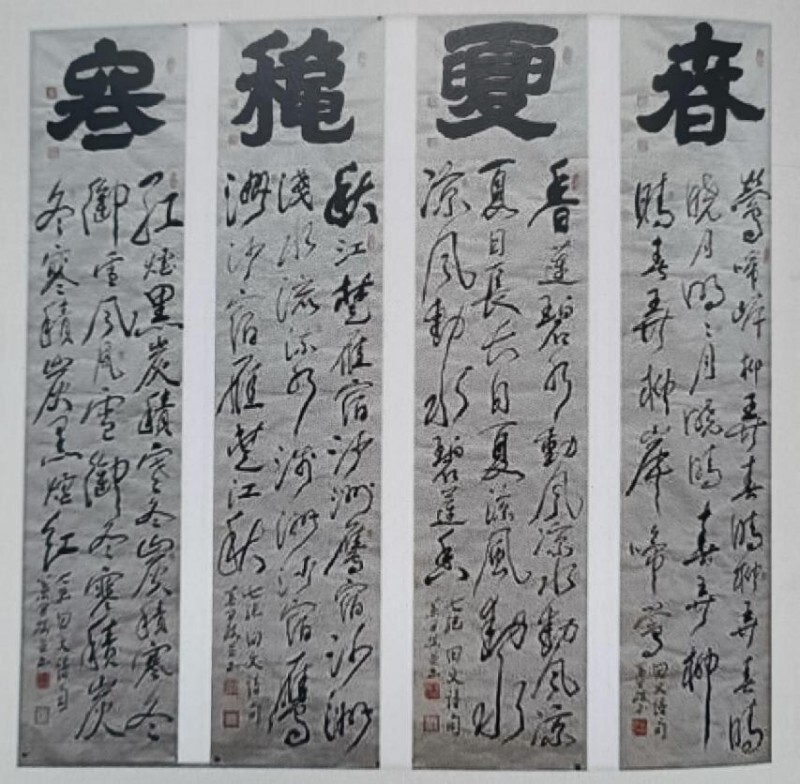 春
鶯啼岸柳弄春晴柳弄春晴
曉月明明月曉晴春弄柳
晴春弄柳岸啼鶯
回文诗句
夏
香蓮碧水動風凉水動風凉
夏日長長日夏凉風動水
凉風動水碧蓮香
七絕回文诗句
穐
秋江楚雁宿沙洲鴈宿沙洲
淺水流流水淺洲沙宿鴈
洲沙宿雁楚江秋
七絕回文诗句
寒
红爐黑炭積寒冬炭積寒冬
御雪風風雪御冬寒積炭
冬寒積炭黑爐红
七言回文诗句